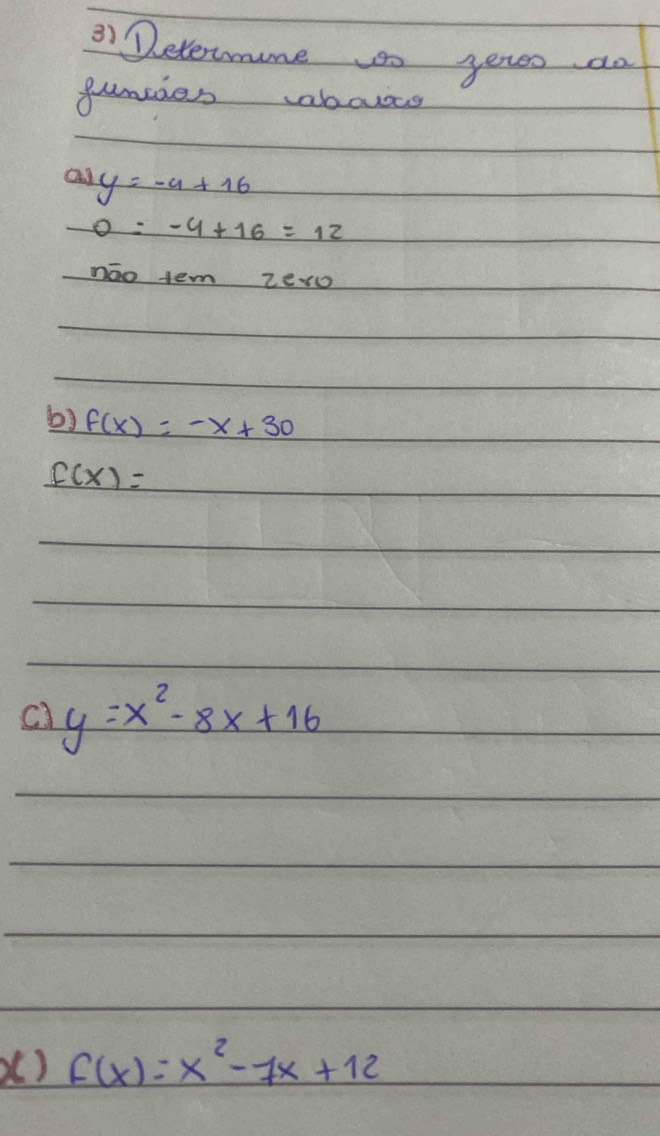 3) Determine os zeros da
funções abaixo
a) y = -4 + 16
0 = -4 + 16 = 12
não tem zero
b) f(x) = -x + 30
f(x) =
c) y = x² - 8x + 16
d) f(x) = x² - 7x + 12